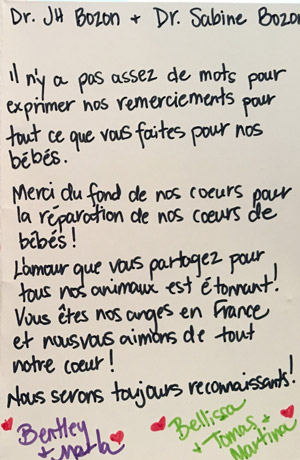 Dr. JH Bozon + Dr. Sabine Bozon
il n'y a pas assez de mots pour
exprimer nos remerciements pour
tout ce que vous faites pour nos
bébés.
Merci du fond de nos coeurs pour
la réparation de nos coeurs de
bébés!
L'amour que vous partagez pour
tous nos animaux est étonnant!
Vous êtes nos anges en France
et nous vous aimons de tout
notre coeur!
Nous serons toujours reconnaissants!
Bentley
+ Marla
Bellissa
+ Tomas +
Martina